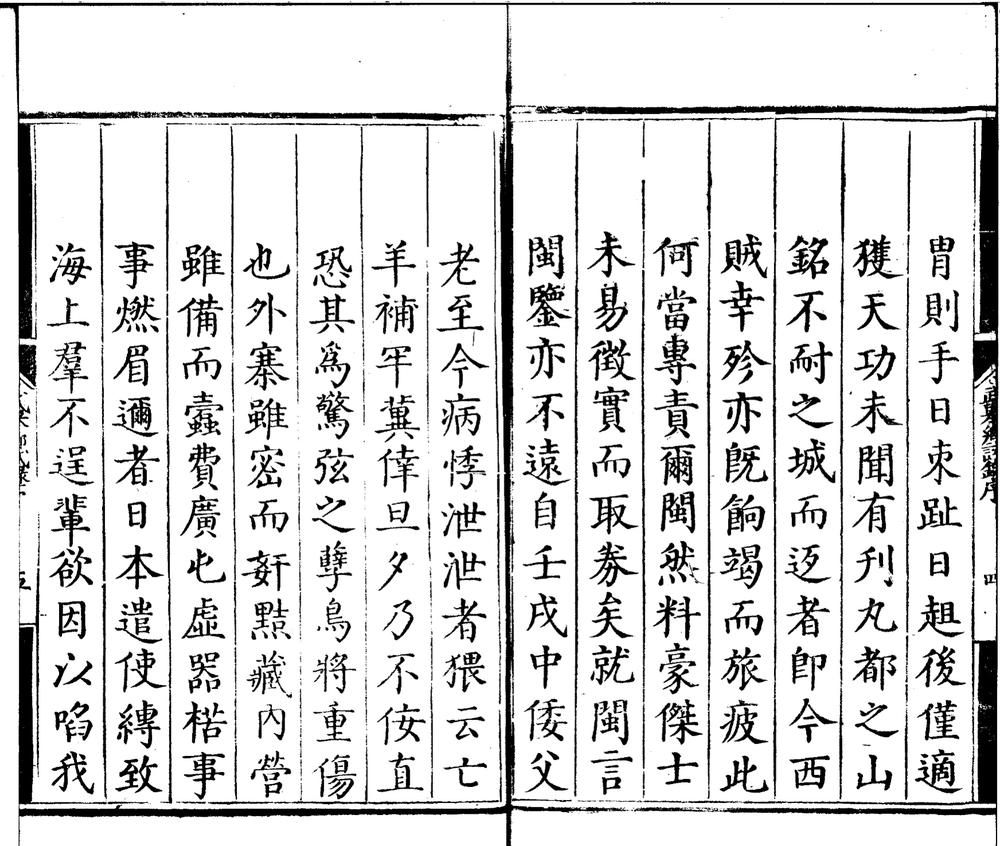 胄則手日束趾日趄後僅適
獲天功未聞有刋丸都之山
銘不耐之城而迓者卽今西
賊幸殄亦旣餉竭而旅疲此
何當專責爾閩然料豪傑士
未易徵實而取券矣就閩言
閩鑒亦不遠自壬戌中倭父
老至今病悸泄泄者猥云亡
羊補牢冀倖旦夕乃不佞直
恐其爲驚弦之孽鳥將重傷
也外寨雖密而奸黠藏內營
雖備而蠹費廣屯虛器楛事
事燃眉邇者日本遣使縛致
海上羣不逞輩欲因以啗我
四
五